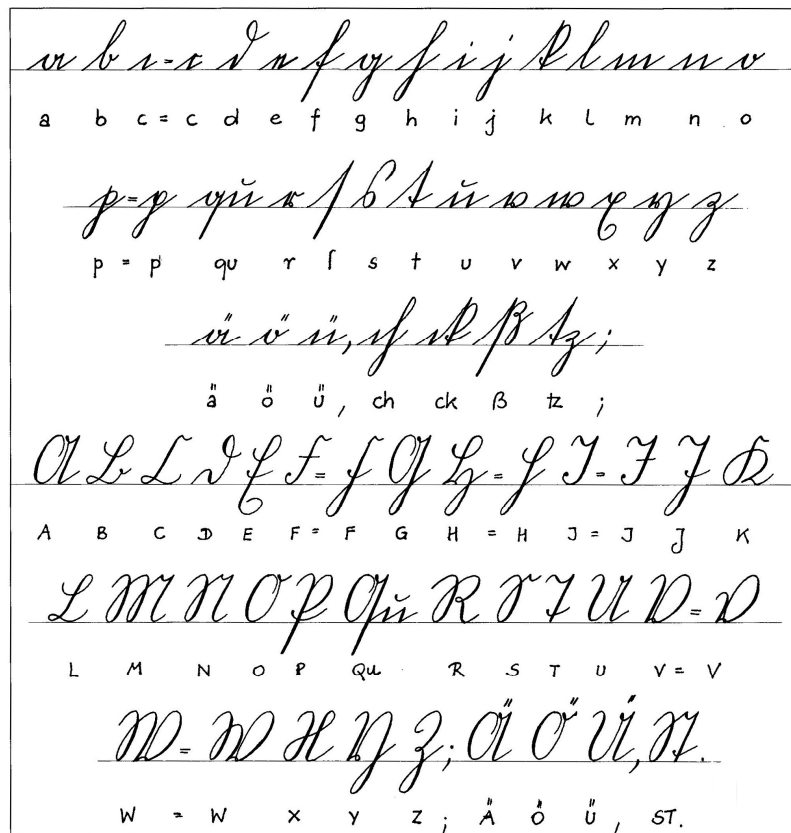 a b c = c d e f g h i j k l m n o
a b c = c d e f g h i j k l m n o
p = p qu r ſ s t u v w x y z
p = p qu r ſ s t u v w x y z
ä ö ü, ch ck ß tz ;
ä ö ü , ch ck ß tz ;
A B C D E F = F G H = H I = I J K
A B C D E F = F G H = H J = J J K
L M N O P Qu R S T U V = V
L M N O P Qu R S T U V = V
W = W X Y Z ; Ä Ö Ü, ST.
W = W X Y Z ; Ä Ö Ü , ST.